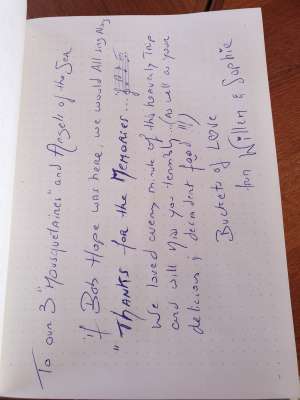 To our 3 "Mousquetaires" and Angels of the Sea
if Bob Hope was here, we would All sing Along
"THANKS for the MEMORIES...
We loved every minute of this heavenly trip
and will miss you terribly...(As well as your
delicious & decadent food!!)
Buckets of Love
Willem & Sophie